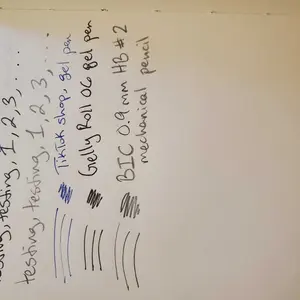 testing, testing, 1, 2, 3, ....
testing, testing, 1, 2, 3, ....
TikTok shop, gel pen
Gelly Roll 06 gel pen
BIC 0.9 mm HB #2
mechanical pencil